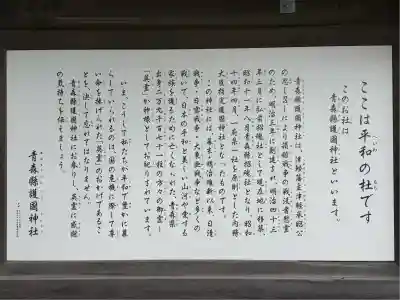 ここは平和の杜です
このお社は
青森縣護國神社といいます。
青森縣護國神社は、津軽藩主津軽承昭公
の思し召しにより箱館戦争の戦没者慰霊
のため、明治三年に創建され、明治四十三
年三月に私祭招魂社として現在地に移築、
昭和十一年八月青森縣招魂社となり、昭和
十四年四月、一府県一社を原則とした内務
大臣指定護國神社となったものです。
この神社には、幕末・明治維新以来、日清
戦争・日露戦争・大東亜戦争など多くの
戦いで、日本の平和と美しい山河や愛する
家族を護るために亡くなられた、青森県
出身二万九千百七十一柱の方々の御霊＝
「英霊」が神様としてお祀りされています。
いま、こうして私たちが平和で豊かに暮
らしていられるのは、国の危機に際して尊
い命を捧げられた「英霊」のおかげであるこ
とを、決して忘れてはなりません。
青森縣護國神社にお参りし、英霊に感謝
の気持ちを伝えましょう。
青森縣護國神社